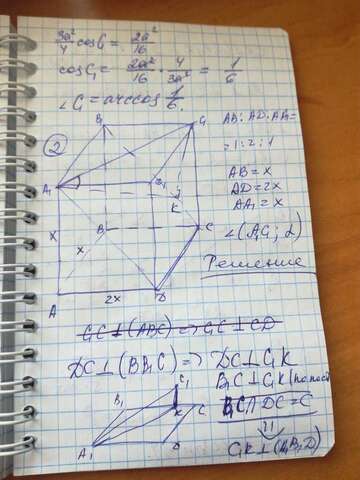 3a²/4 cosC₁ = 2a²/16
cosC₁ = 2a²/16 · 4/3a² = 1/6
∠C₁ = arccos 1/6.
②
B₁
C₁
A₁
D₁
K
x
B
C
x
A
2x
D
AB:AD:AA₁=
=1:2:1
AB = x
AD = 2x
AA₁ = x
∠(A₁C₁; α)
Решение
C₁C⊥(ABC) => C₁C⊥CD
DC⊥(BB₁C) => DC⊥C₁K
B₁C⊥C₁K (по пост
B₁C∩DC=C
C₁K⊥(A₁B₁D)
C₁
B₁
K
C
A₁
D